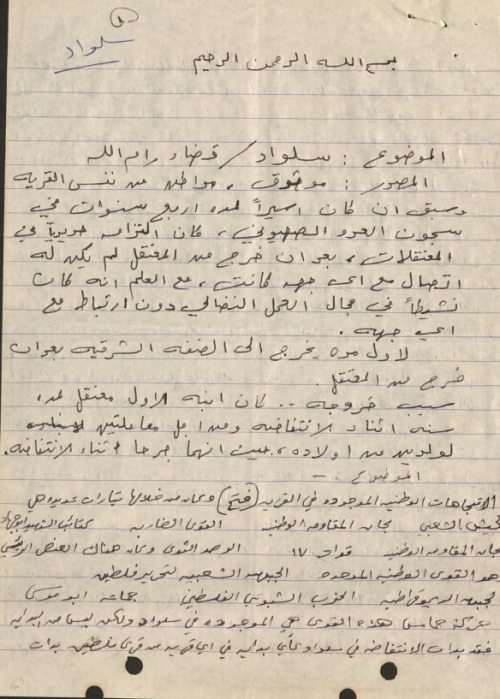 سلواد
بسم الله الرحمن الرحيم
الموضوع : سلواد / قضاء رام الله
المصدر : موثوق ، مواطن من نفس القريه
وسبق ان كان اسيراً لمده اربع سنوات في
سجون العدو الصهيوني ، كان التزامه حديدياً في
المعتقلات ، بعد ان خرج من المعتقل لم يكن له
اتصال مع اي جهه كانت ، مع العلم انه كان
نشيطاً في مجال العمل النضالي دون ارتباط مع
اي جهه .
لاول مره يخرج الى الضفه الشرقيه بعد ان
خرج من المعتقل
سبب خروجه .. كان ابنه الاول معتقل لمده
سنه اثناء الانتفاضه ومن اجل معاملتين
لولدين من اولاده ، حيث انهما جرحا اثناء الانتفاضه .
الموضوع :-
الاتجاهات الوطنيه الموجوده في القريه (فتح) وكان من خلالها تيارات عديده هي
الجيش الشعبي لجان المقاومه الوطنيه القوى الضاربه كتائب الشهيد ابو جهاد
لجان المقاومه الوطنيه قوات ١٧ الرصد الثوري وكان هناك
القوى الوطنيه الموحده الجبهه الشعبيه لتحرير فلسطين
الجبهه الديموقراطيه الحزب الشيوعي الفلسطيني جماعه ابو موسى
حركة حماس هذه القوى هي الموجوده في سلواد ولكن ليس من البدايه
فقد بدات الانتفاضه في سلواد كأي بدايه في اي قريه من قرى فلسطين بدات